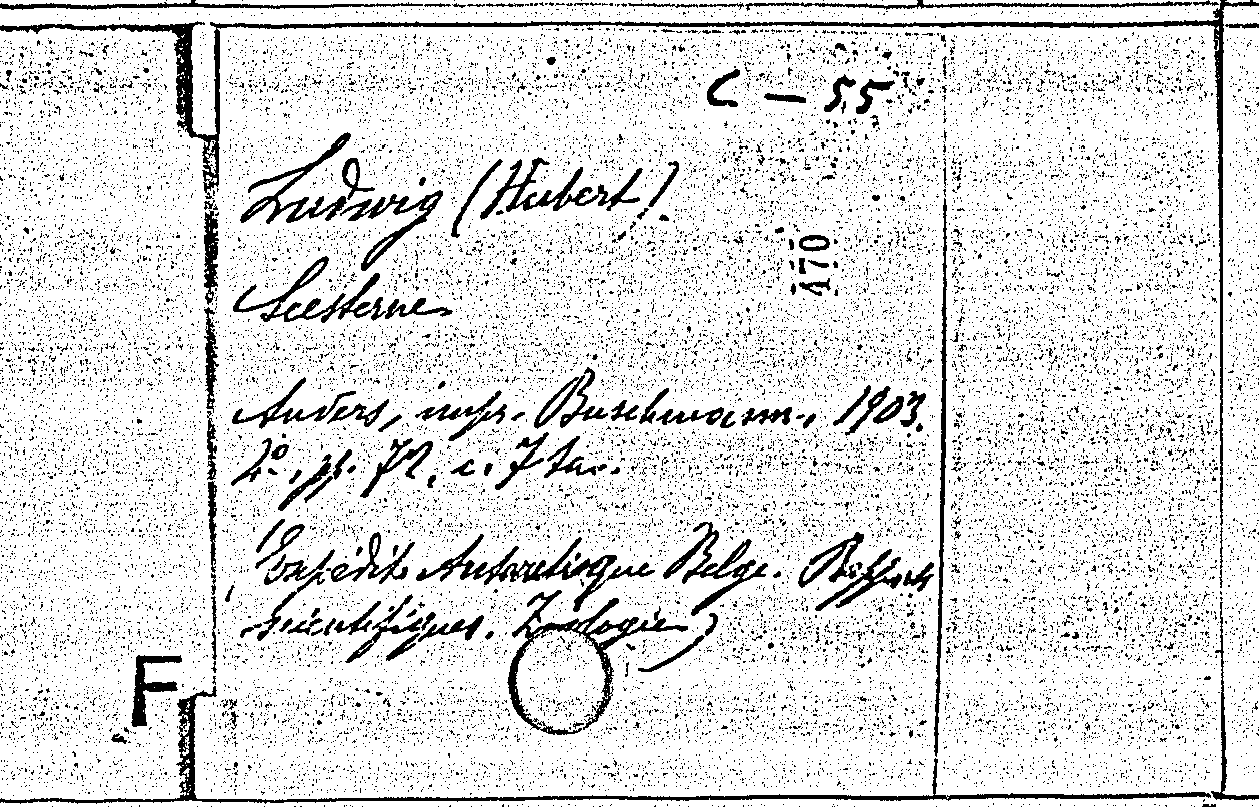 C — 55
Ludwig (Hubert).
470
Seesterne
Anvers, impr. Buschmann, 1903.
2°, pp. 72, c. 7 tav.
(Expédit. Antarctique Belge. Rapports
scientifiques. Zoologie)
F